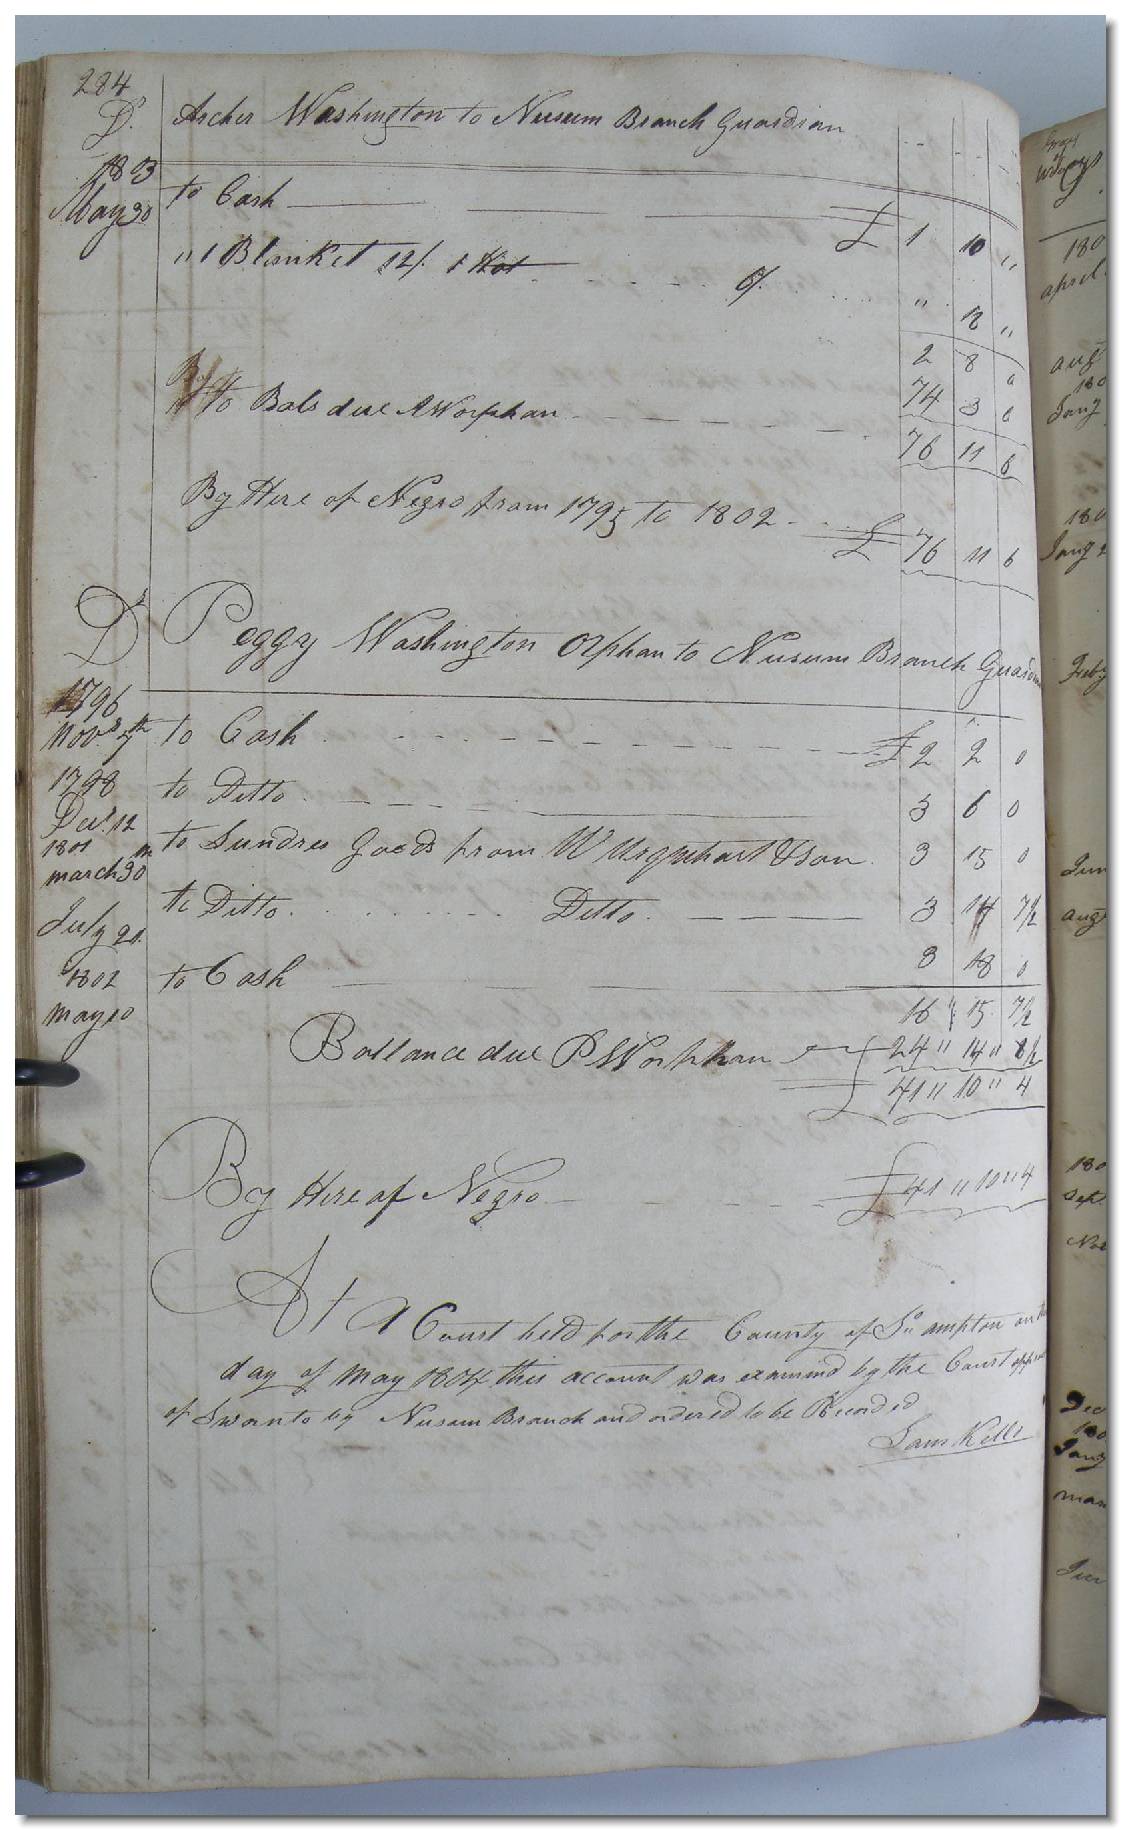 284
Dr. Archer Washington to Nusum Branch Guardian
1803
May 30 to Cash £ 1 10 "
" 1 Blanket 12/. 1 Hat 6/. " 18 "
2 8 "
to Bals due AW orphan 74 3 6
76 11 6
By Hire of Negro from 1795 to 1802 £ 76 11 6
Dr Peggy Washington Orphan to Nusum Branch Guardian
1796
Novr 7th to Cash £ 2 2 0
1798 to Ditto 3 6 0
Decr. 12
1801 to Sundres Goods from W Urquhart & Son 3 15 0
march 30th
to Ditto Ditto 3 14 7/2
July 21
1802 to Cash 3 18 0
may 10 16 " 15 7/2
Ballance due P W orphan 24 " 14 " 8/2
£ 41 " 10 " 4
By Hire of Negro £ 41 " 10 " 4
At A Court held for the County of So ampton on the
day of May 1804 this account was examind by the Court
of Sworn to by Nusum Branch and ordered to be Recorded
Sam Kello
180
april
aug
180
Jany
180
Jany 2
Feby
Jun
aug
180
Sept
Nov
Dec
180
Jany
mar
Jun